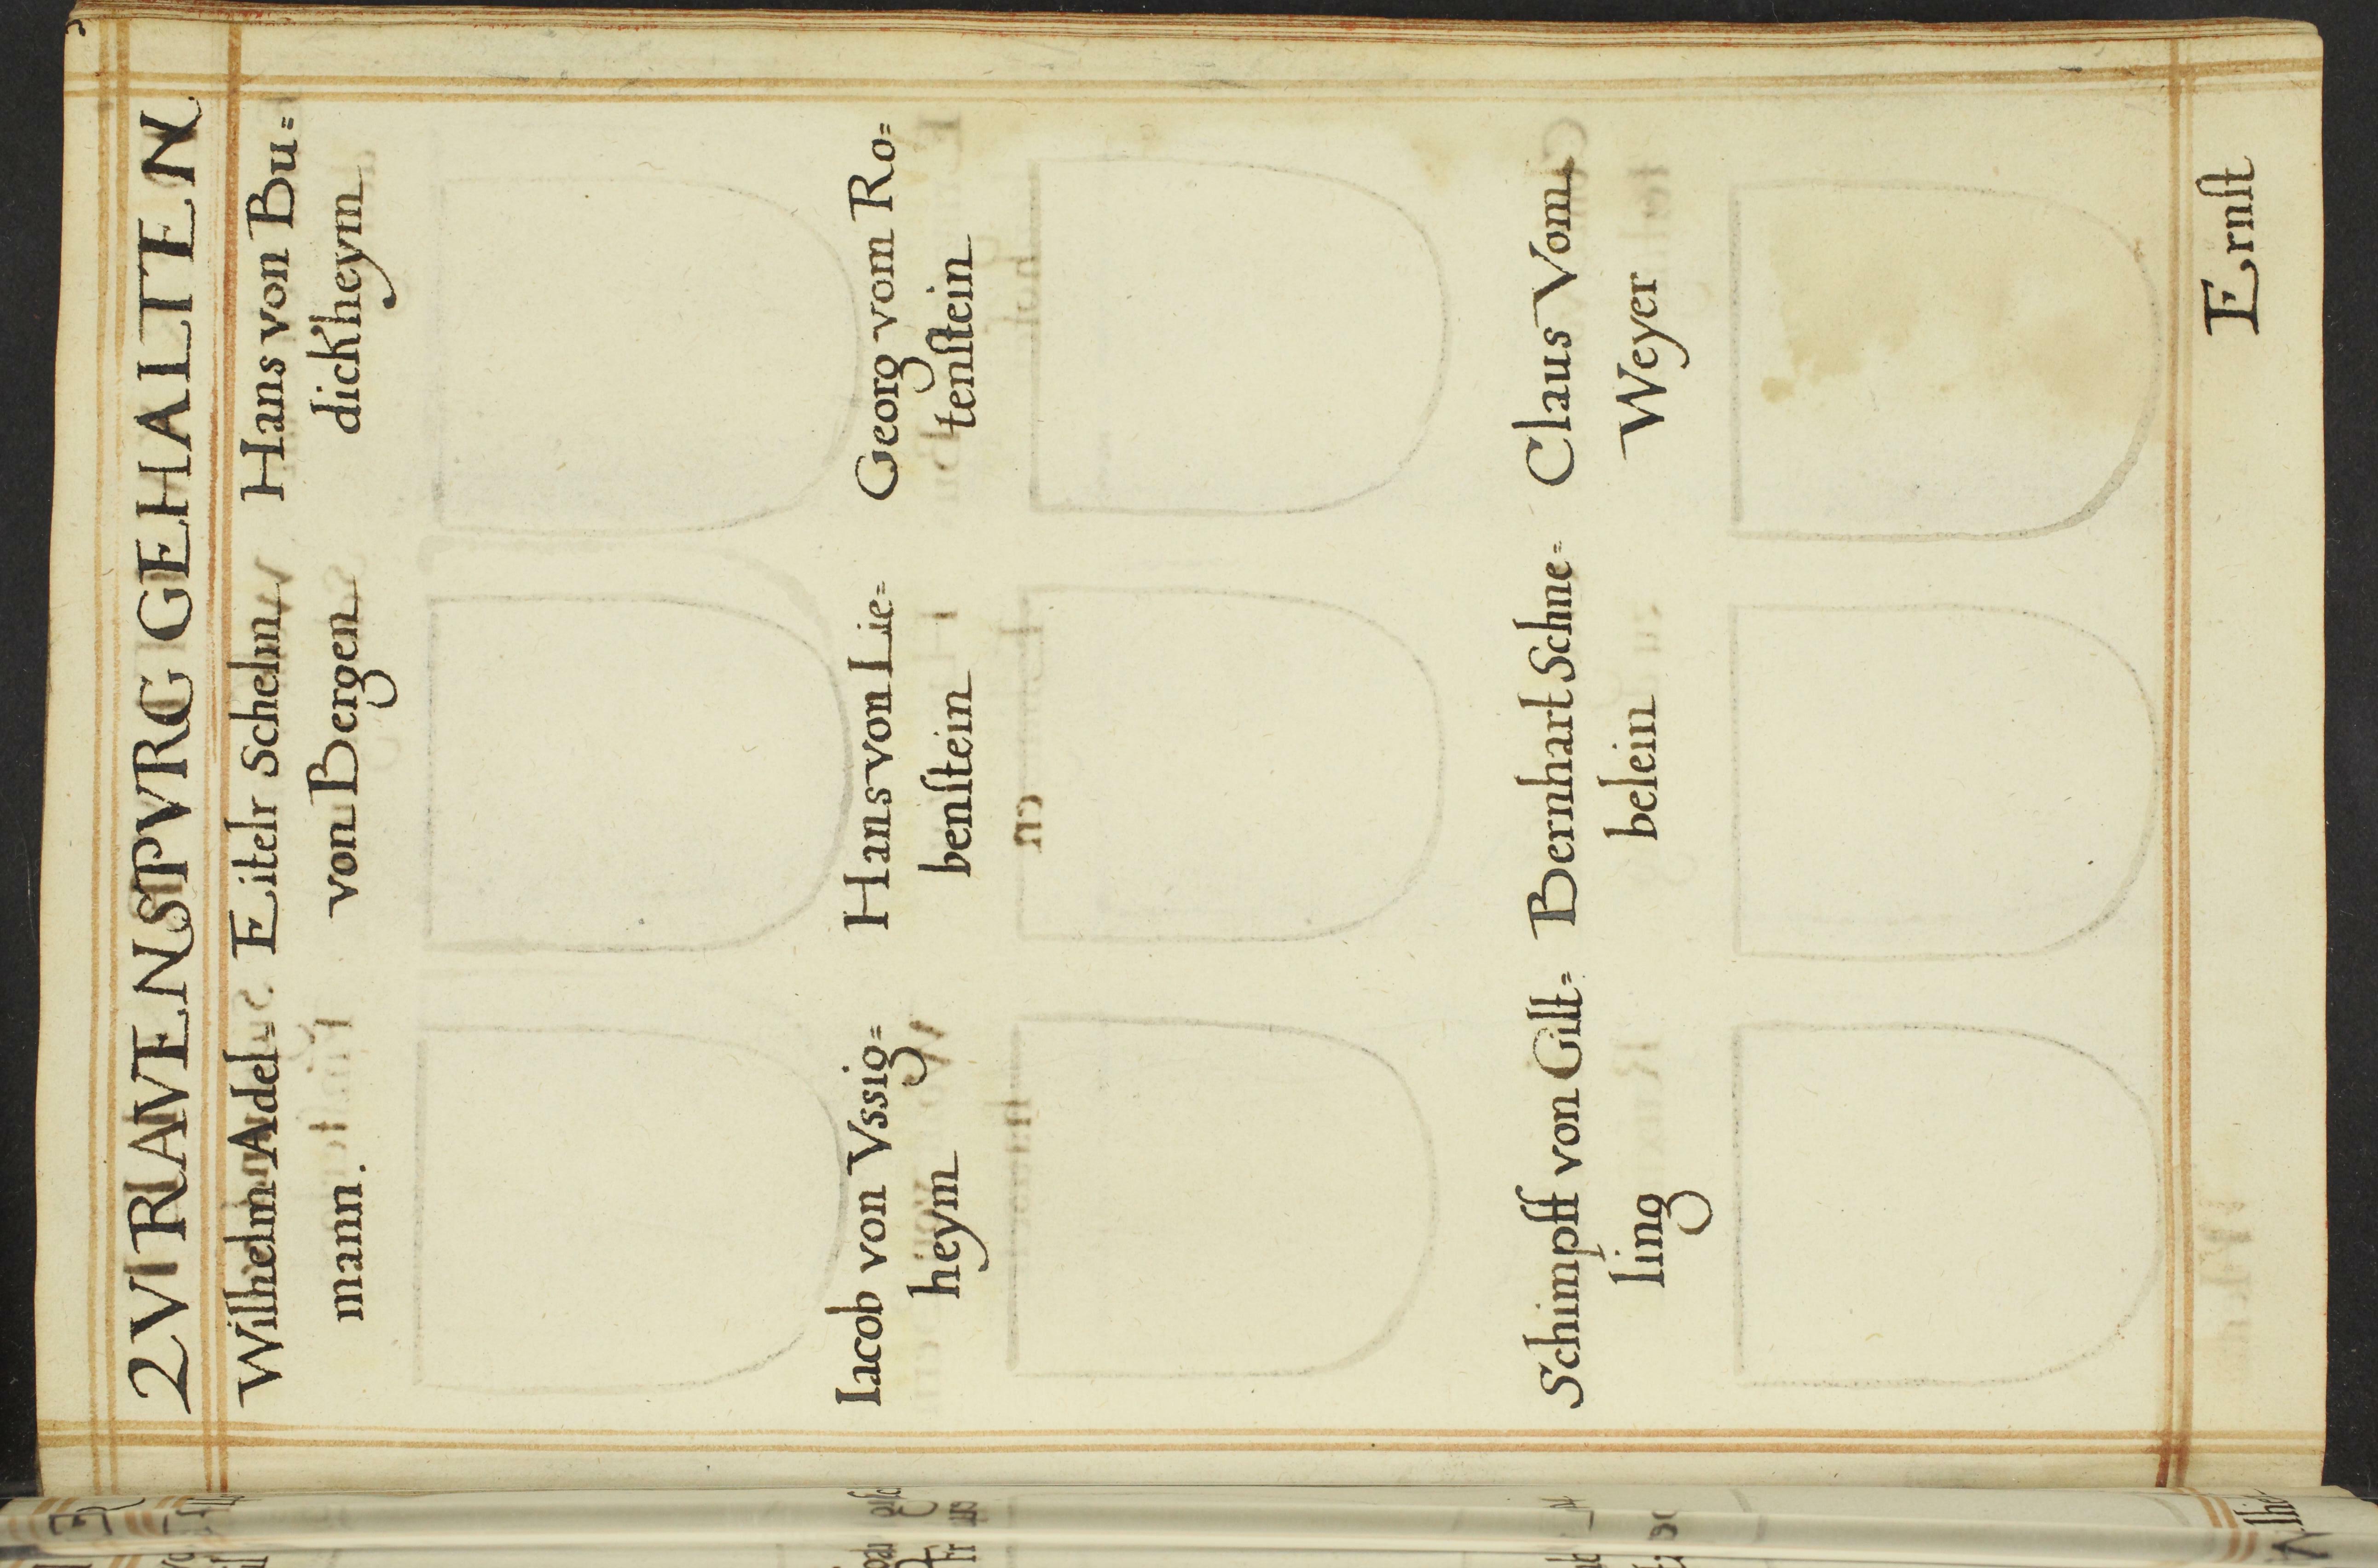 ZV RAVENSPVRG GEHALTEN
Wilhelm Adel=
mann.
Eitelr Schelm
von Bergen
Hans von Bu=
dickheym
Iacob von Vssig=
heym
Hans von Lie=
benſtein
Georg vom Ro=
tenſtein
Schimpff von Gilt=
ling
Bernhart Schne=
belein
Claus Vom
Weyer
Ernſt